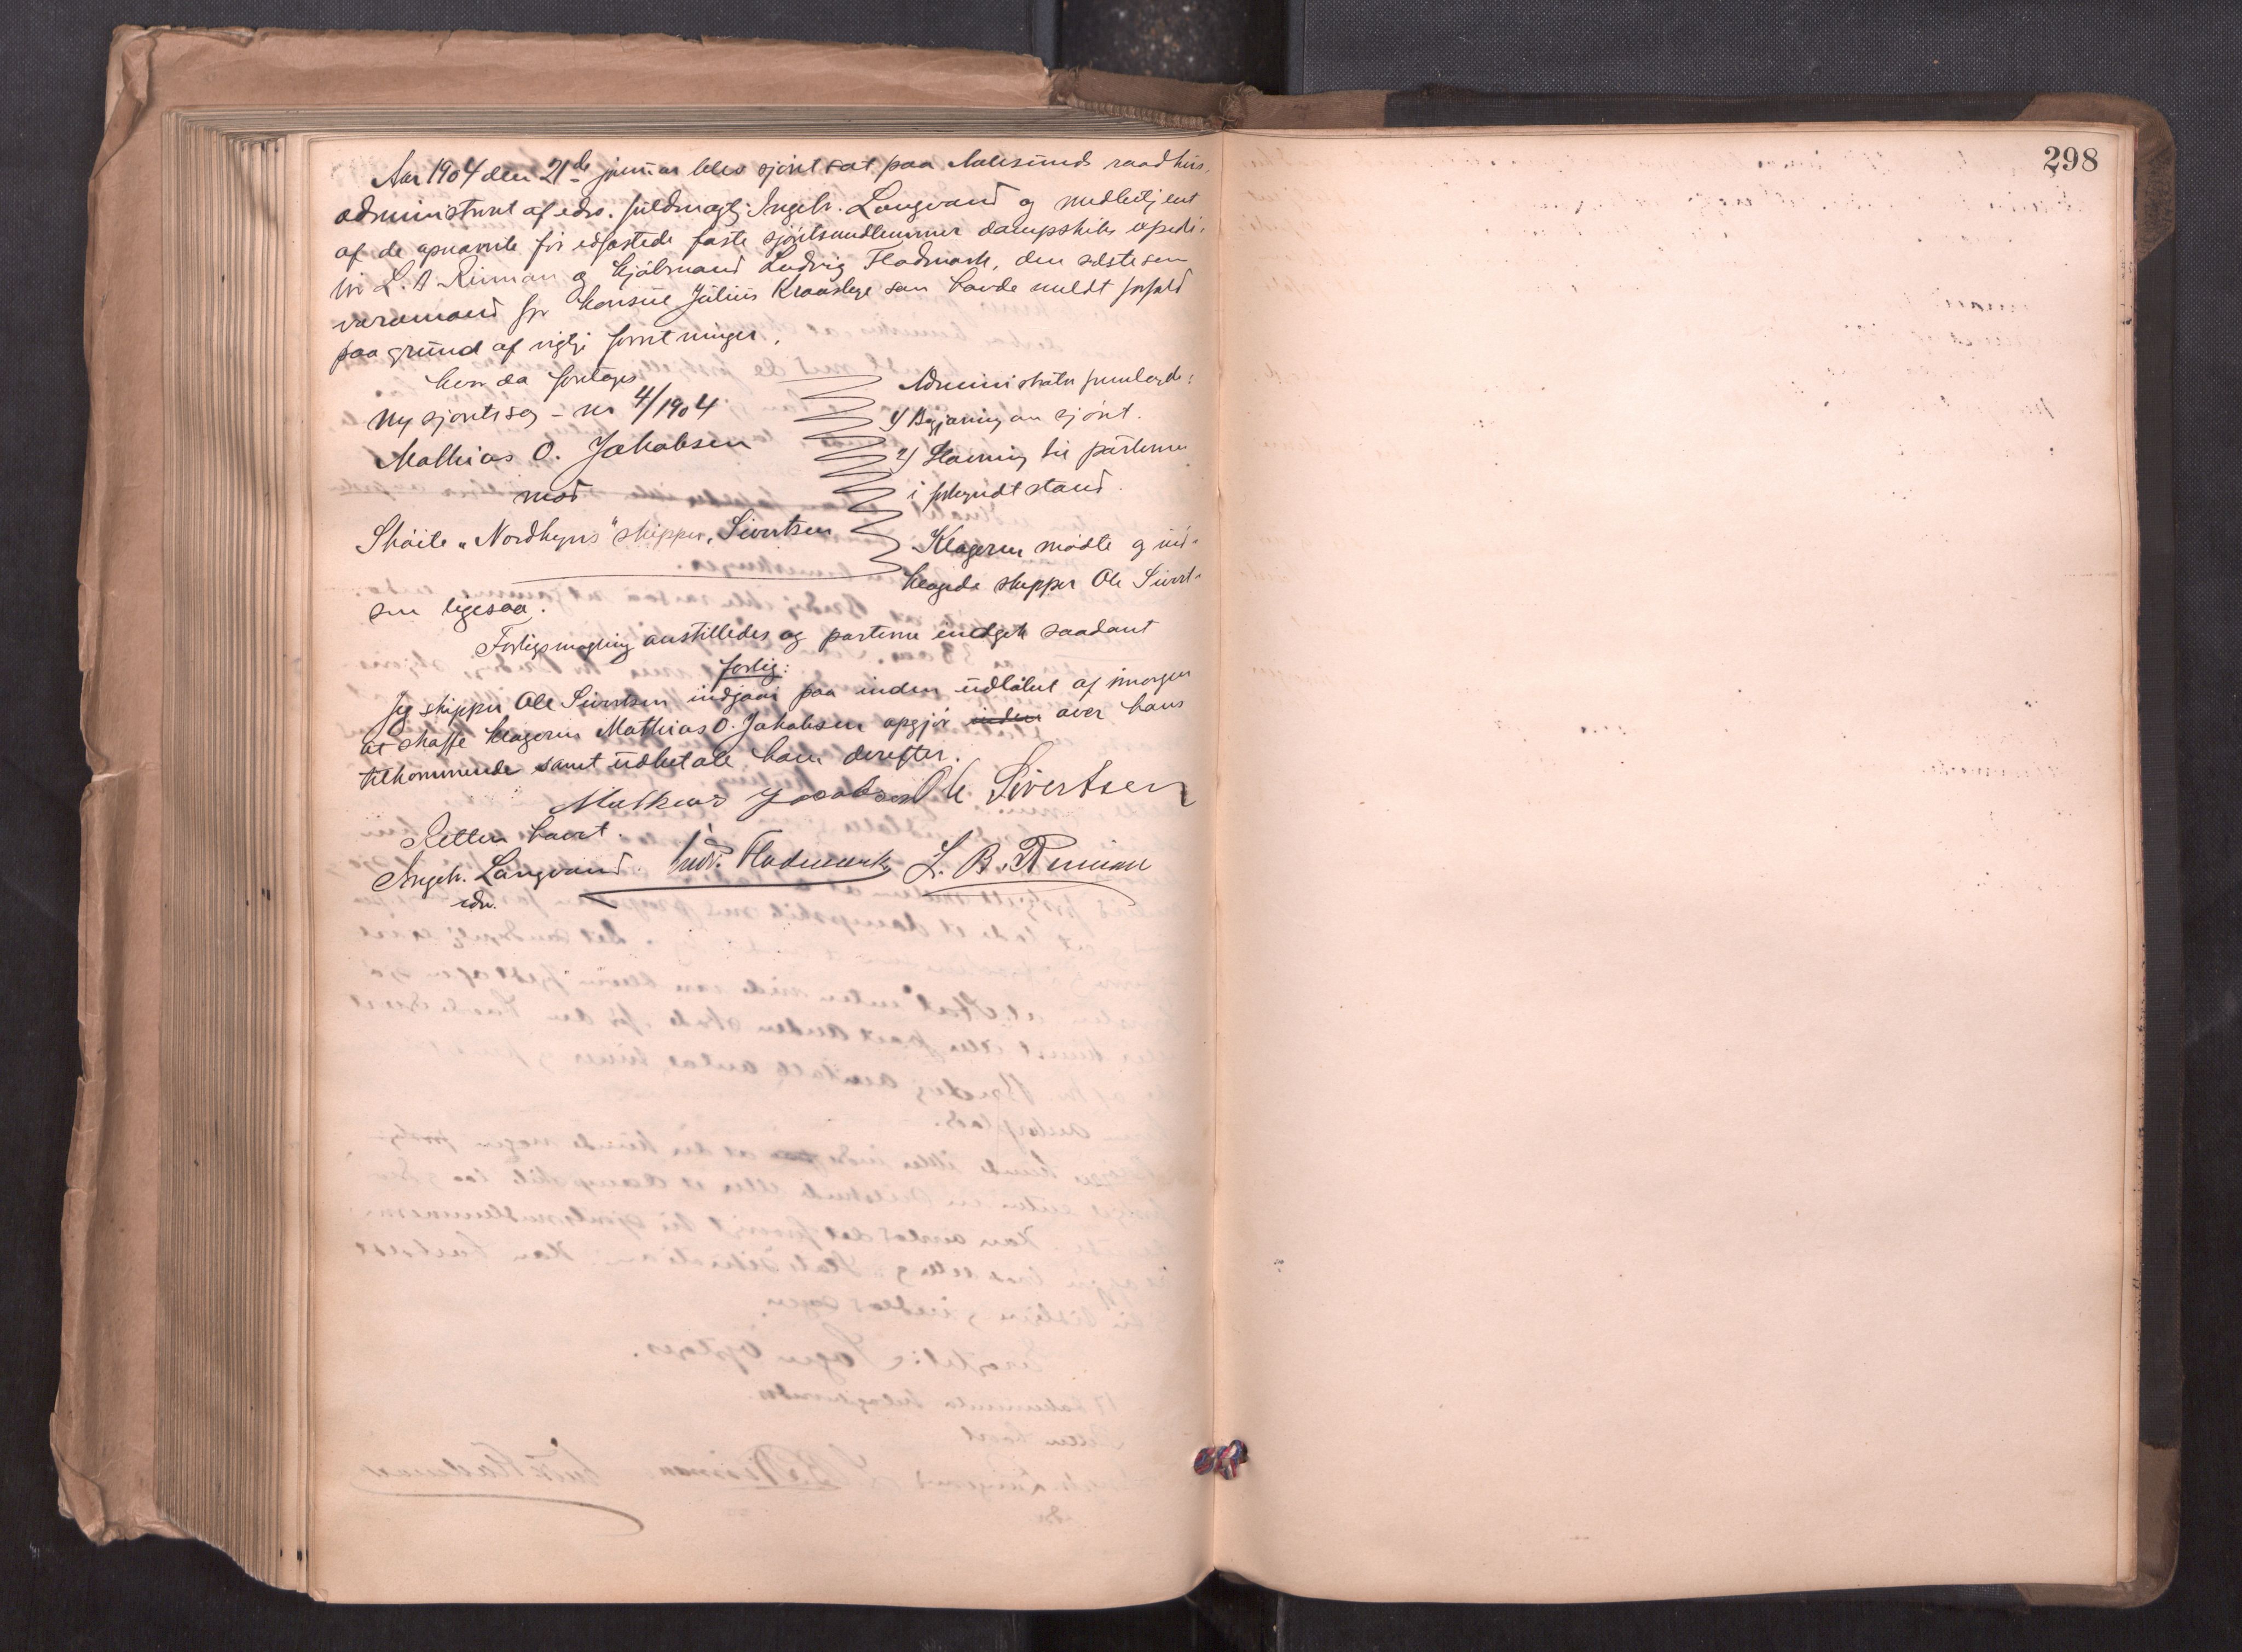 Aar 1904 den 21de januar blev sjøret sat paa Aalesunds raadhus,
administreret af edsv. fuldmægtig Ingebr. Langvand og medbetjent
af de opnævnte før edfæstede faste sjøretsmedlemmer dampskibsexpedi-
tør L. B. Reiman og Kjøbmand Ludvig Flademark, den sidste som
varamand for konsul Julius som havde meldt forfald
paa grund af vigtige forretninger.
hvor da foretoges
Ny sjøretssag - no 4/1904
Mathias O. Jakobsen
mod
Skøite "Nordkyns" skipper, Sivertsen
Administrator fremlagde:
1) Begjæring om sjøret.
2) Stævning til parterne
i forkyndt stand.
Klageren mødte og ind-
klagede skipper Ole Sivert-
sen ligesaa.
Forligsmægling anstilledes og parterne indgik saadant
forlig:
Jeg skipper Ole Sivertsen indgaar paa inden udløbet af imorgen
at skaffe klageren Mathias O. Jakobsen opgjør inden over hans
tilkommende samt udbetale ham derefter.
Mathias Jacobsen Ole Sivertsen
Retten hævet.
Ingebr. Langvand. Ludv. Flademark L. B. Reiman
edsv.
298